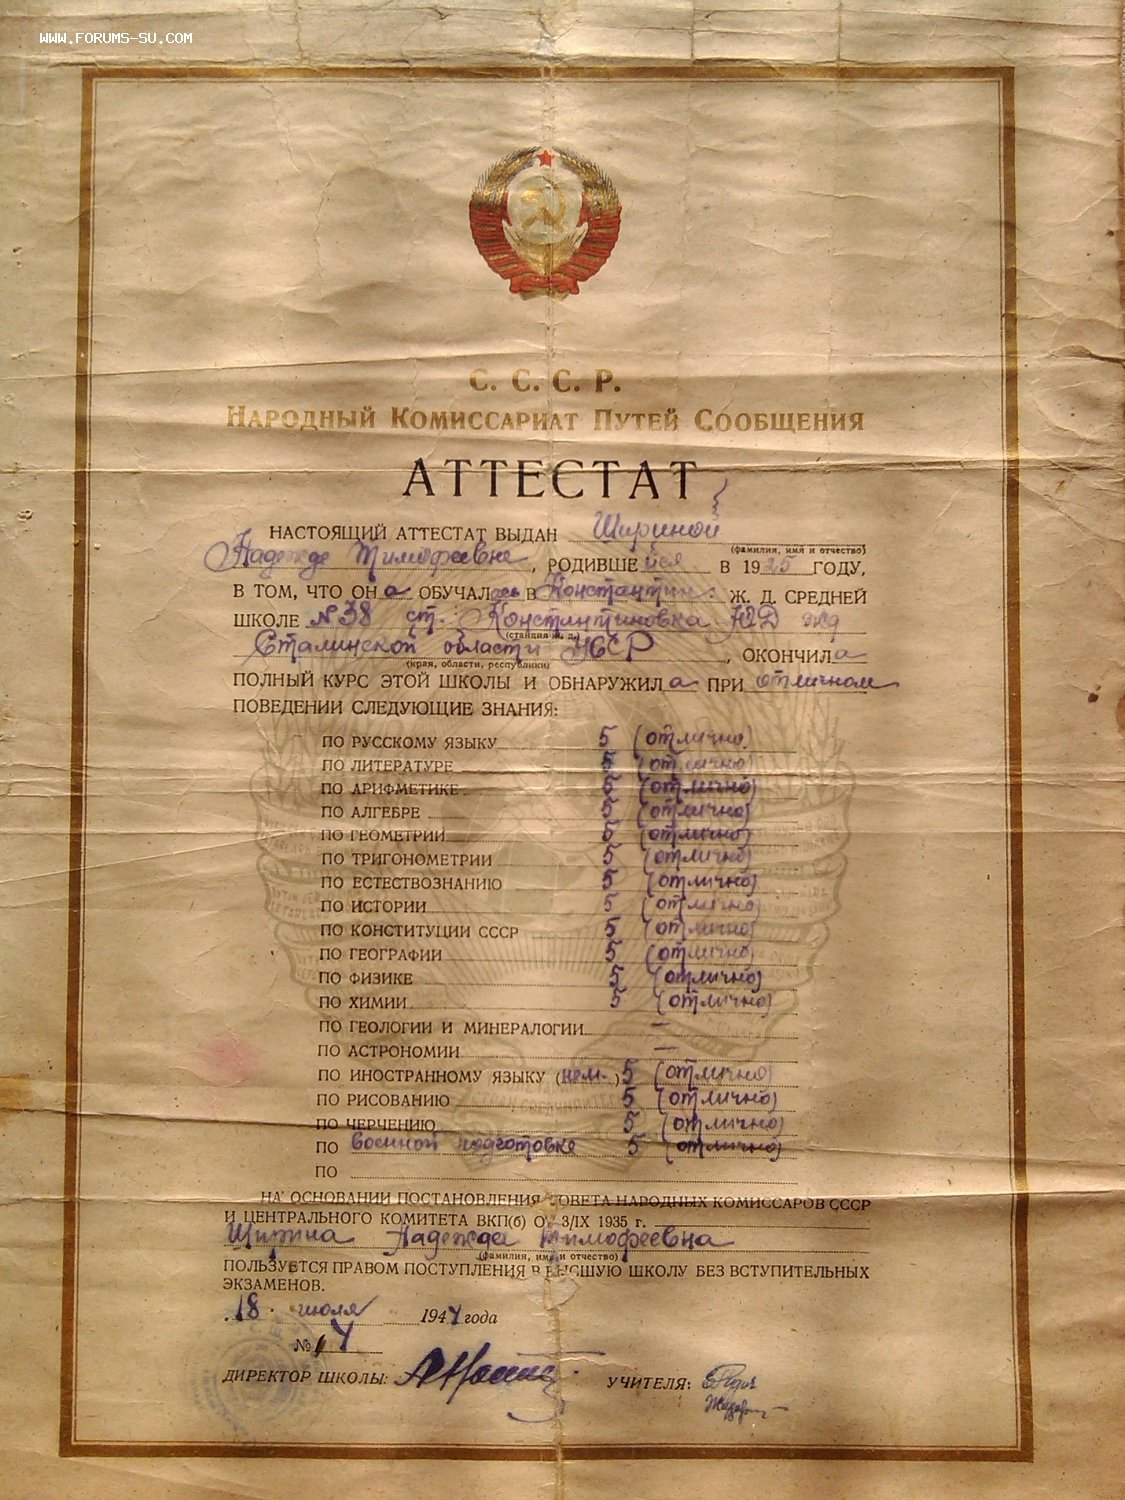 WWW.FORUMS-SU.COM
С. С. С. Р.
НАРОДНЫЙ КОМИССАРИАТ ПУТЕЙ СООБЩЕНИЯ
АТТЕСТАТ
НАСТОЯЩИЙ АТТЕСТАТ ВЫДАН Шириной
(фамилия, имя и отчество)
Надежде Тимофеевне, РОДИВШЕйся В 1925 ГОДУ,
В ТОМ, ЧТО ОНа ОБУЧАЛась В Константин. Ж. Д. СРЕДНЕЙ
ШКОЛЕ №38 ст. Константиновка ЮД жд
(станция ж. д.)
Сталинской области УССР, ОКОНЧИЛа
(края, области, республики)
ПОЛНЫЙ КУРС ЭТОЙ ШКОЛЫ И ОБНАРУЖИЛа ПРИ отличном
ПОВЕДЕНИИ СЛЕДУЮЩИЕ ЗНАНИЯ:
ПО РУССКОМУ ЯЗЫКУ 5 (отлично)
ПО ЛИТЕРАТУРЕ 5 (отлично)
ПО АРИФМЕТИКЕ 5 (отлично)
ПО АЛГЕБРЕ 5 (отлично)
ПО ГЕОМЕТРИИ 5 (отлично)
ПО ТРИГОНОМЕТРИИ 5 (отлично)
ПО ЕСТЕСТВОЗНАНИЮ 5 (отлично)
ПО ИСТОРИИ 5 (отлично)
ПО КОНСТИТУЦИИ СССР 5 (отлично)
ПО ГЕОГРАФИИ 5 (отлично)
ПО ФИЗИКЕ 5 (отлично)
ПО ХИМИИ 5 (отлично)
ПО ГЕОЛОГИИ И МИНЕРАЛОГИИ —
ПО АСТРОНОМИИ —
ПО ИНОСТРАННОМУ ЯЗЫКУ (нем.) 5 (отлично)
ПО РИСОВАНИЮ 5 (отлично)
ПО ЧЕРЧЕНИЮ 5 (отлично)
ПО военной подготовке 5 (отлично)
ПО
НА ОСНОВАНИИ ПОСТАНОВЛЕНИЯ СОВЕТА НАРОДНЫХ КОМИССАРОВ СССР
И ЦЕНТРАЛЬНОГО КОМИТЕТА ВКП(б) ОТ 3/IX 1935 г.
Ширина Надежда Тимофеевна
(фамилия, имя и отчество)
ПОЛЬЗУЕТСЯ ПРАВОМ ПОСТУПЛЕНИЯ В ВЫСШУЮ ШКОЛУ БЕЗ ВСТУПИТЕЛЬНЫХ
ЭКЗАМЕНОВ.
18 июля 1944 года
№ 4
ДИРЕКТОР ШКОЛЫ: УЧИТЕЛЯ: